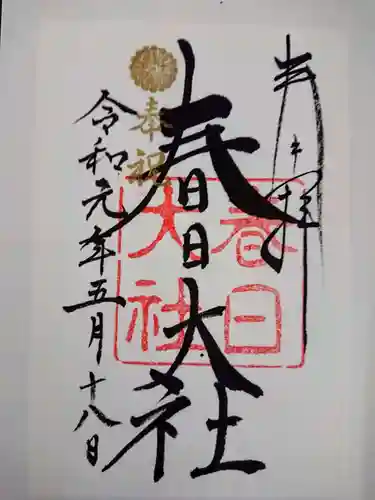 奉拝
春日大社
奉祝
令和元年五月十八日
春日
大社